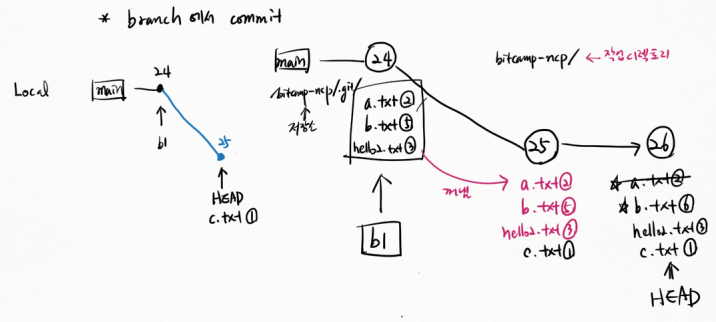 * branch 에서 commit
Local
main
24
b1
25
HEAD
c.txt ①
main
24
bitcamp-ncp/.git/
저장소
a.txt ②
b.txt ⑤
hello2.txt ③
b1
꺼냄
bitcamp-ncp/ ← 작업디렉토리
25
a.txt ②
b.txt ⑤
hello2.txt ③
c.txt ①
26
☆ a.txt ②
☆ b.txt ⑥
hello2.txt ③
c.txt ①
HEAD